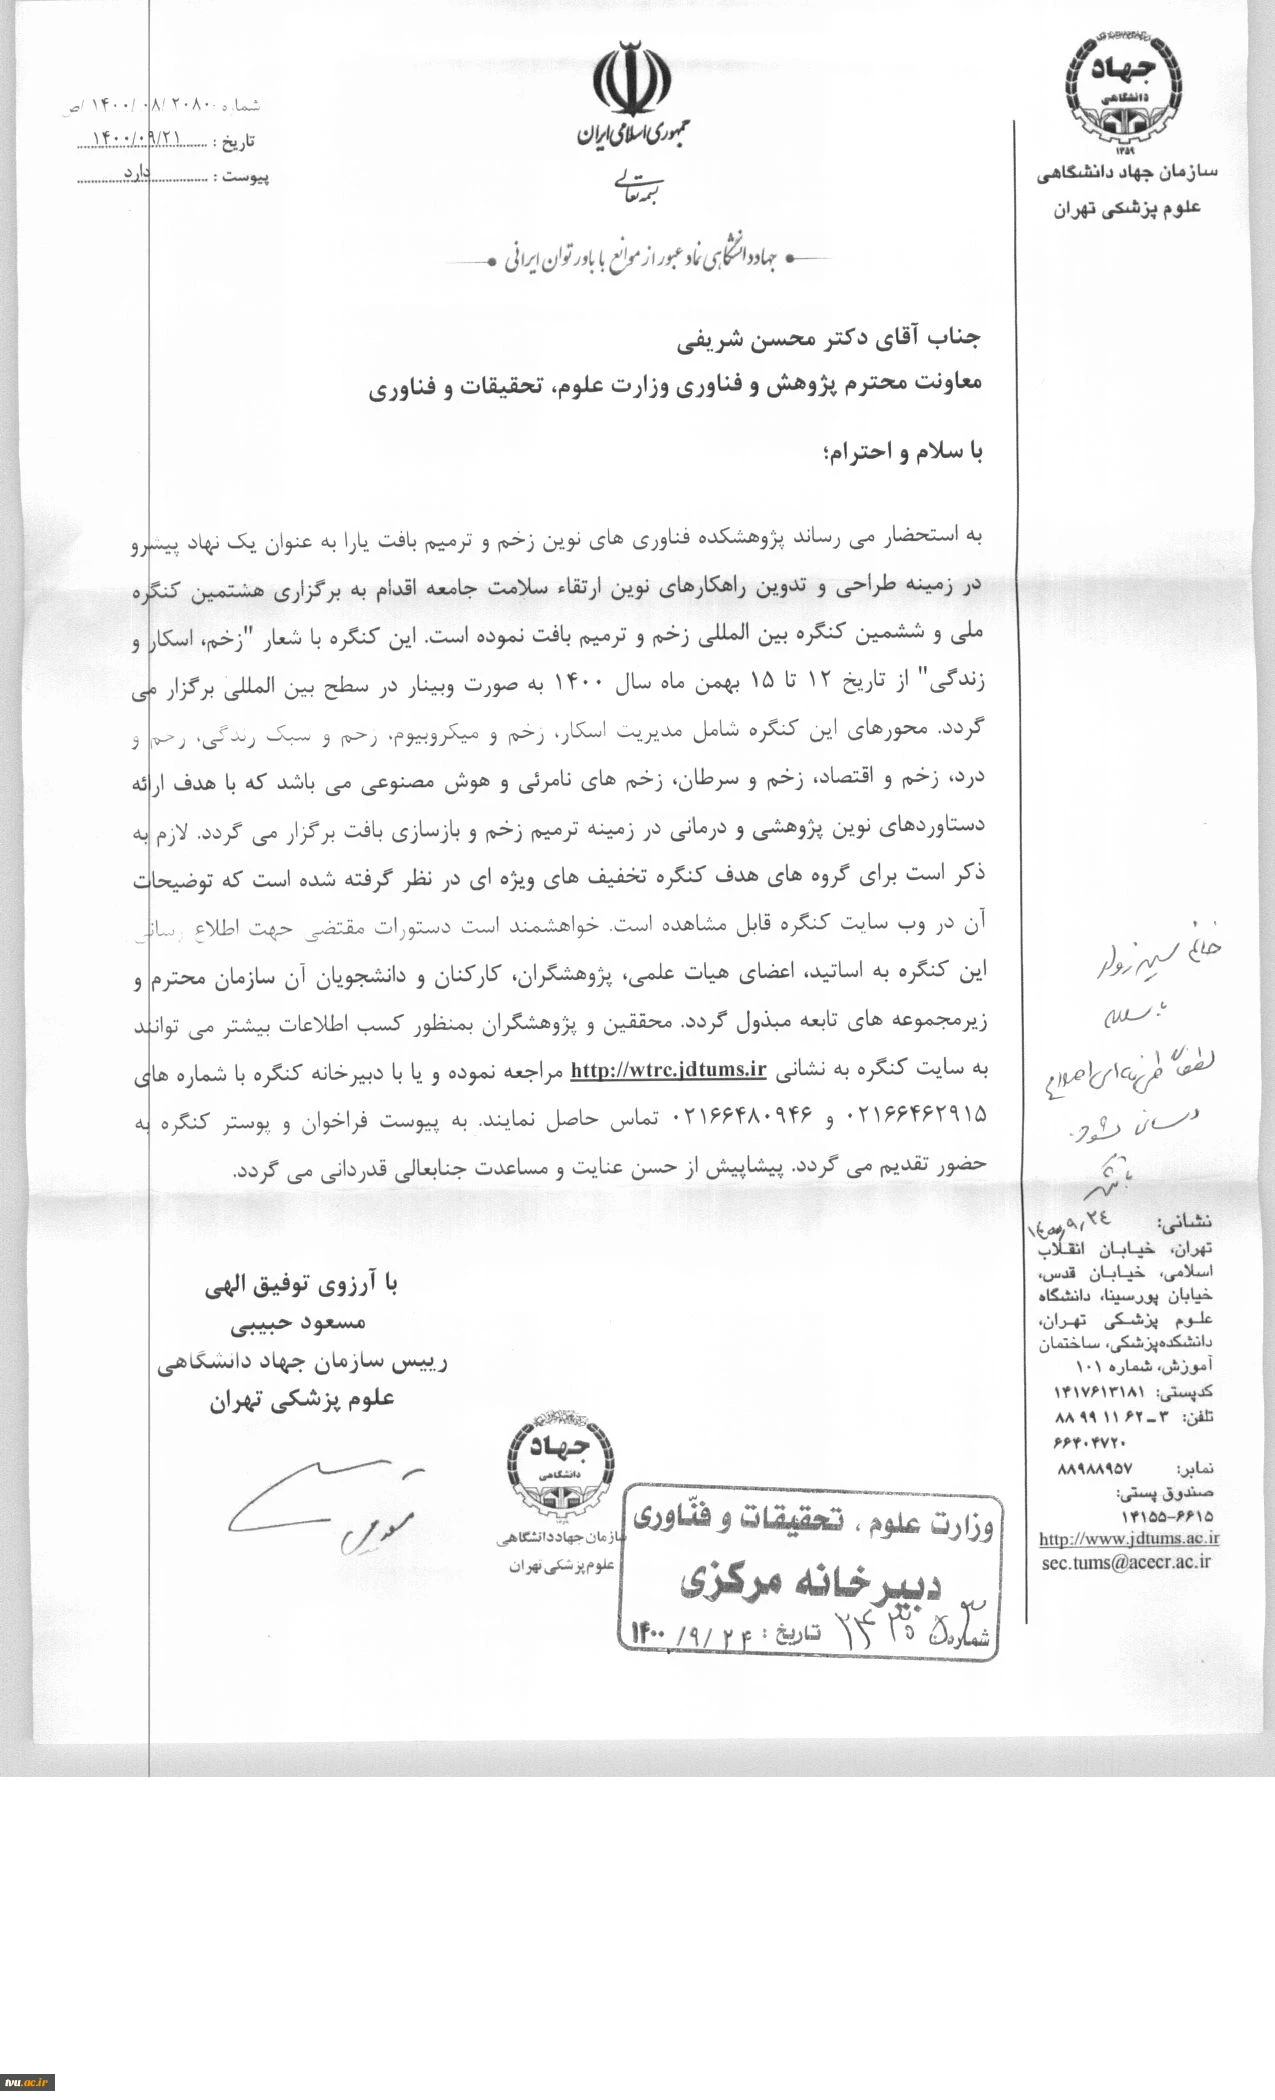 جهاد
دانشگاهی
۱۳۵۹
سازمان جهاد دانشگاهی
علوم پزشکی تهران
جمهوری اسلامی ایران
بسمه تعالی
شماره ۱۴۰۰/۰۸/۲۰۸۰/ص
تاریخ : ۱۴۰۰/۰۹/۲۱
پیوست : دارد
جهاددانشگاهی نماد عبور از موانع با باور توان ایرانی
جناب آقای دکتر محسن شریفی
معاونت محترم پژوهش و فناوری وزارت علوم، تحقیقات و فناوری
با سلام و احترام؛
به استحضار می رساند پژوهشکده فناوری های نوین زخم و ترمیم بافت یارا به عنوان یک نهاد پیشرو
در زمینه طراحی و تدوین راهکارهای نوین ارتقاء سلامت جامعه اقدام به برگزاری هشتمین کنگره
ملی و ششمین کنگره بین المللی زخم و ترمیم بافت نموده است. این کنگره با شعار "زخم، اسکار و
زندگی" از تاریخ ۱۲ تا ۱۵ بهمن ماه سال ۱۴۰۰ به صورت وبینار در سطح بین المللی برگزار می
گردد. محورهای این کنگره شامل مدیریت اسکار، زخم و میکروبیوم، زخم و سبک زندگی، زخم و
درد، زخم و اقتصاد، زخم و سرطان، زخم های نامرئی و هوش مصنوعی می باشد که با هدف ارائه
دستاوردهای نوین پژوهشی و درمانی در زمینه ترمیم زخم و بازسازی بافت برگزار می گردد. لازم به
ذکر است برای گروه های هدف کنگره تخفیف های ویژه ای در نظر گرفته شده است که توضیحات
آن در وب سایت کنگره قابل مشاهده است. خواهشمند است دستورات مقتضی جهت اطلاع رسانی
این کنگره به اساتید، اعضای هیات علمی، پژوهشگران، کارکنان و دانشجویان آن سازمان محترم و
زیرمجموعه های تابعه مبذول گردد. محققین و پژوهشگران بمنظور کسب اطلاعات بیشتر می توانند
به سایت کنگره به نشانی http://wtrc.jdtums.ir مراجعه نموده و یا با دبیرخانه کنگره با شماره های
۰۲۱۶۶۴۶۲۹۱۵ و ۰۲۱۶۶۴۸۰۹۴۶ تماس حاصل نمایند. به پیوست فراخوان و پوستر کنگره به
حضور تقدیم می گردد. پیشاپیش از حسن عنایت و مساعدت جنابعالی قدردانی می گردد.
با آرزوی توفیق الهی
مسعود حبیبی
رییس سازمان جهاد دانشگاهی
علوم پزشکی تهران
جهاد
دانشگاهی
سازمان جهاددانشگاهی
علوم پزشکی تهران
وزارت علوم ، تحقیقات و فنّاوری
دبیرخانه مرکزی
شماره تاریخ : ۱۴۰۰/۹/۲۴
خانم
با سلام
لطفا
شود.
با تشکر
۱۴۰۰/۹/۲۴
نشانی:
تهران، خیابان انقلاب
اسلامی، خیابان قدس،
خیابان پورسینا، دانشگاه
علوم پزشکی تهران،
دانشکده‌پزشکی، ساختمان
آموزش، شماره ۱۰۱
کدپستی: ۱۴۱۷۶۱۳۱۸۱
تلفن: ۳ــ۶۲ ۱۱ ۹۹ ۸۸
۶۶۴۰۴۷۲۰
نمابر: ۸۸۹۸۸۹۵۷
صندوق پستی:
۱۴۱۵۵-۶۶۱۵
http://www.jdtums.ac.ir
sec.tums@acecr.ac.ir
tvu.ac.ir